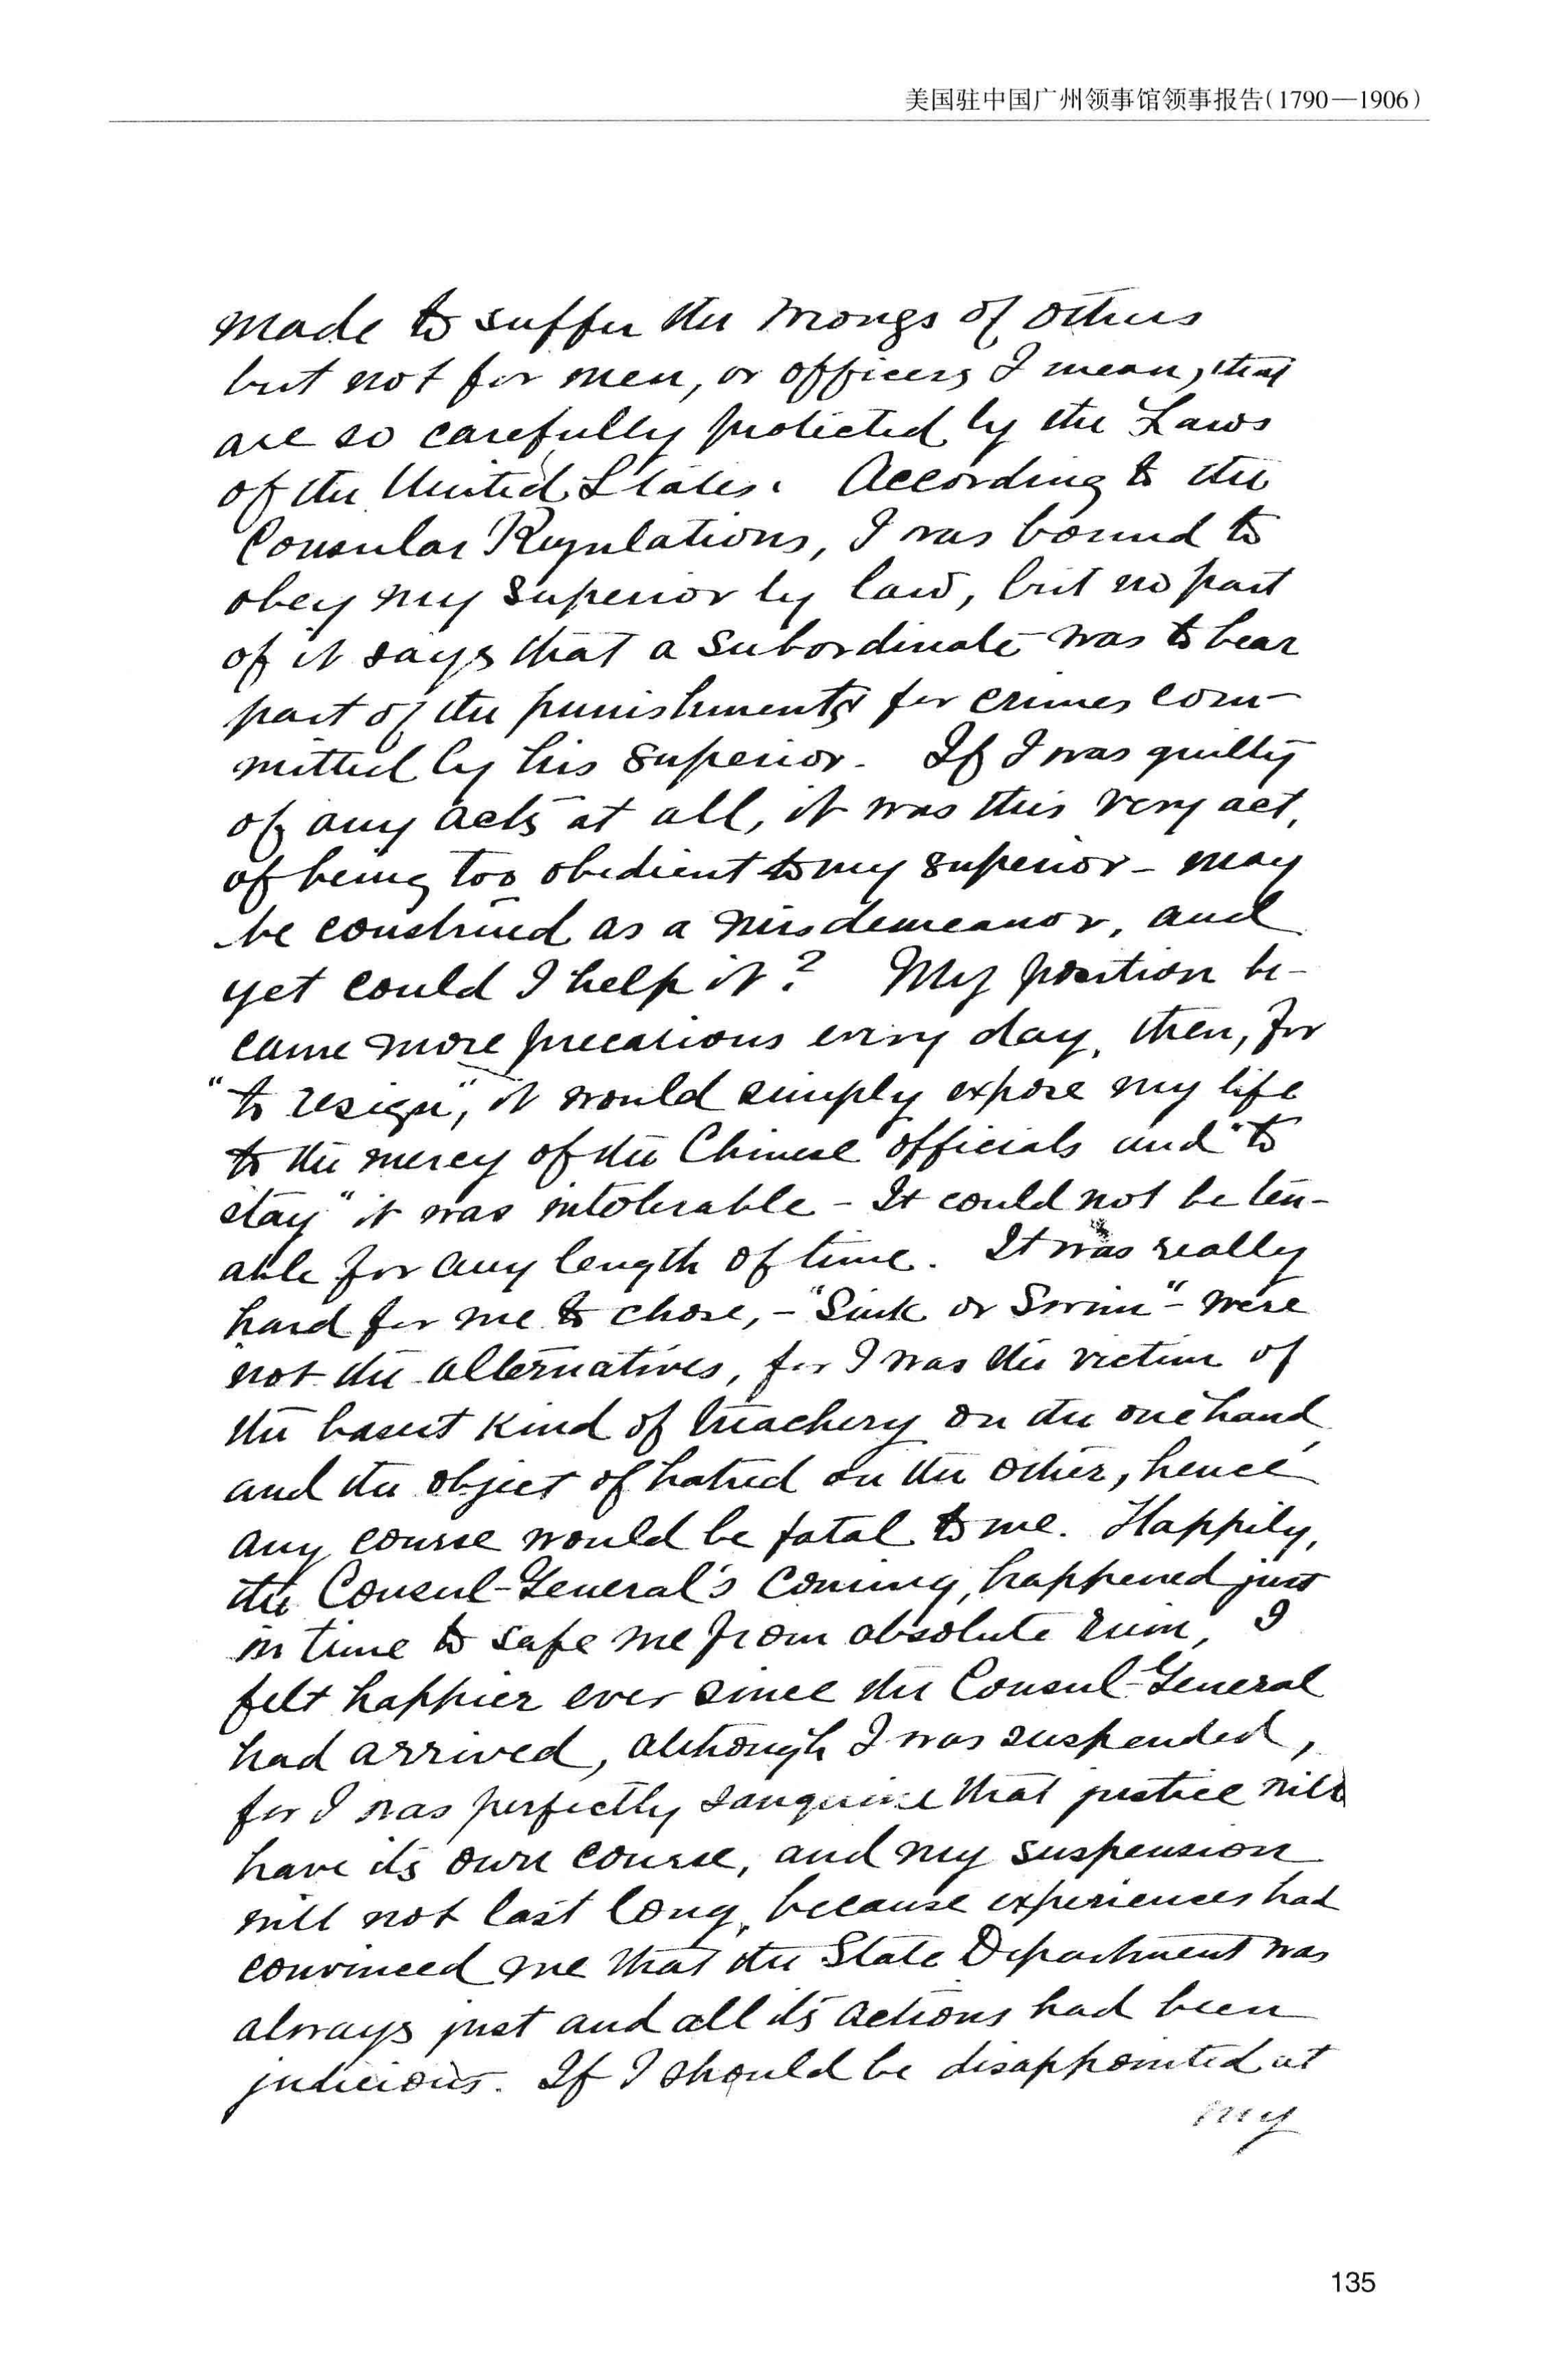 美国驻中国广州领事馆领事报告(1790—1906)
made to suffer the wrongs of others
but not for men, or officers I mean, that
are so carefully protected by the Laws
of the United States. According to the
Consular Regulations, I was bound to
obey my superior by law, but no part
of it says that a subordinate was to bear
part of the punishments for crimes com-
mitted by his superior. If I was guilty
of any acts at all, it was this very act,
of being too obedient to my superior - may
be construed as a misdemeanor, and
yet could I help it? My position be-
came more precarious every day, then, for
"to resign", it would simply expose my life
to the mercy of the Chinese officials and "to
stay" it was intolerable - It could not be ten-
able for any length of time. It was really
hard for me to chose, - "Sink or Swim" - were
not the alternatives, for I was the victim of
the basest kind of treachery on the one hand,
and the object of hatred on the other, hence
any course would be fatal to me. Happily,
the Consul-General's coming, happened just
in time to safe me from absolute ruin, I
felt happier ever since the Consul-General
had arrived, although I was suspended,
for I was perfectly sanguine that justice will
have its own course, and my suspension
will not last long, because experiences had
convinced me that the State Department was
always just and all its actions had been
judicious. If I should be disappointed at
my
135